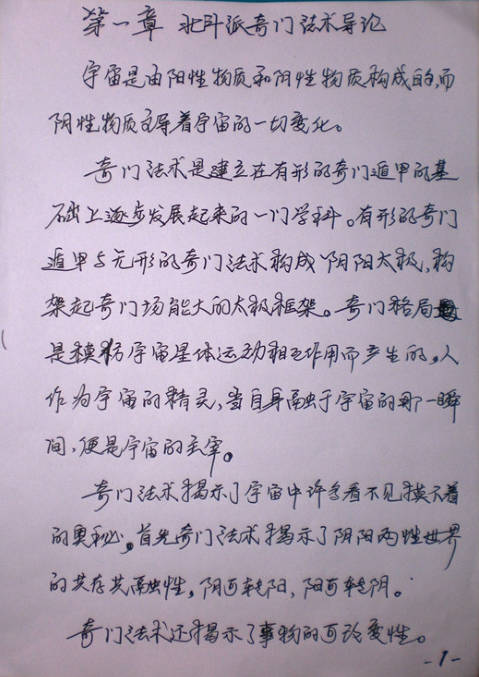 第一章 北斗派奇门法术导论
宇宙是由阳性物质和阴性物质构成的,而
阴性物质主导着宇宙的一切变化。
奇门法术是建立在有形的奇门遁甲的基
础上逐步发展起来的一门学科。有形的奇门
遁甲与无形的奇门法术构成阴阳太极,构
架起奇门场能大的太极框架。奇门格局
是模仿宇宙星体运动相互作用而产生的,人
作为宇宙的精灵,当自身融于宇宙的那一瞬
间,便是宇宙的主宰。
奇门法术揭示了宇宙中许多看不见摸不着
的奥秘。首先奇门法术揭示了阴阳两性世界
的共存共融性,阴可转阳,阳可转阴。
奇门法术还揭示了事物的可改变性。
-1-